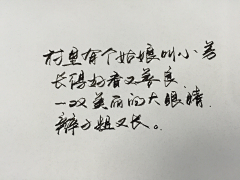 村里有个姑娘叫小芳
长得好看又善良
一双美丽的大眼睛
辫子粗又长。